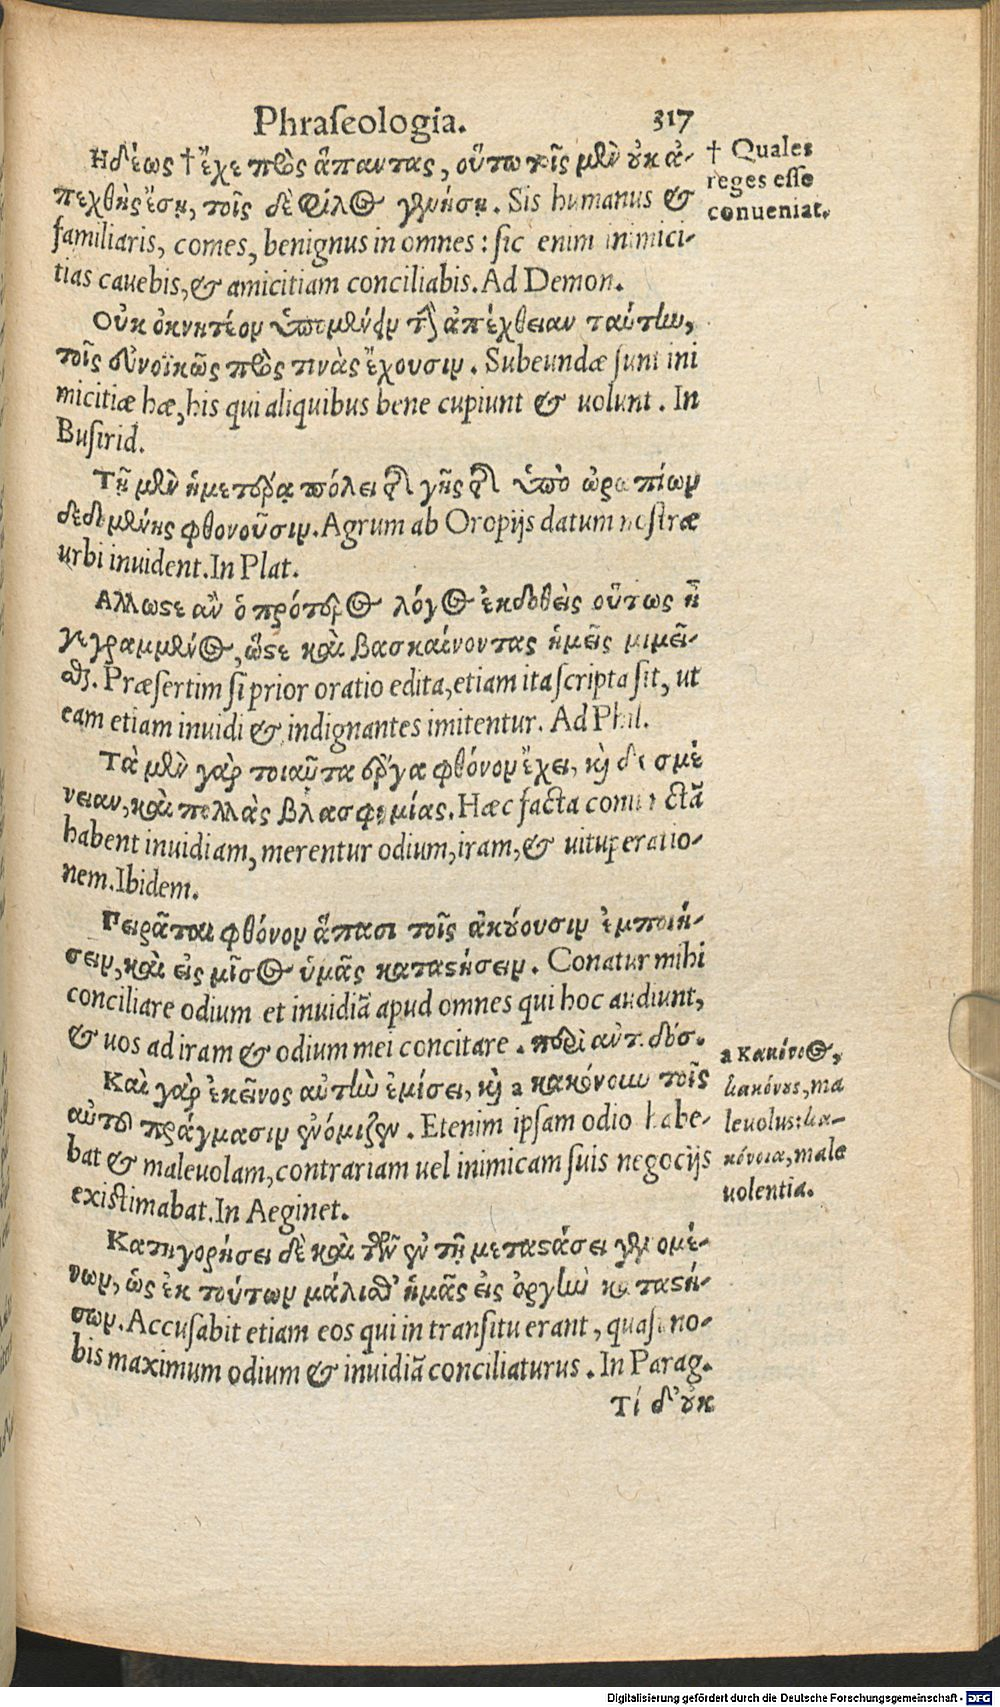 Phraſeologia. 317
Ηδέως † ἔχε πρὸς ἅπαντας, οὕτω τοῖς μὲν οὐκ ἀ-
πεχθὴς ἔσῃ, τοῖς δὲ φίλος γενήσῃ. Sis humanus &
familiaris, comes, benignus in omnes: ſic enim inimici-
tias cauebis, & amicitiam conciliabis. Ad Demon.
† Quales
reges eſſe
conueniat.
Οὐκ ὀκνητέον ὑπομένειν τὴν ἀπέχθειαν ταύτην,
τοῖς εὐνοϊκῶς πρὸς τινὰς ἔχουσιν. Subeundæ ſunt ini
micitiæ hæ, his qui aliquibus bene cupiunt & uolunt. In
Buſirid.
Τῇ μὲν ἡμετέρᾳ πόλει τῆς γῆς τῆς ὑπὸ ὠρωπίων
δεδομένης φθονοῦσιν. Agrum ab Oropijs datum noſtræ
urbi inuident. In Plat.
Αλλωστε ἂν ὁ πρότερος λόγος ἐκδοθεὶς οὕτως ἦ
γεγραμμένος, ὥστε καὶ βασκαίνοντας ἡμεῖς μιμεῖ-
σθαι. Præſertim ſi prior oratio edita, etiam ita ſcripta ſit, ut
eam etiam inuidi & indignantes imitentur. Ad Phil.
Τὰ μὲν γὰρ τοιαῦτα ἔργα φθόνον ἔχει, καὶ δυσμέ
νειαν, καὶ πολλὰς βλασφημίας. Hæc facta coniunctã
habent inuidiam, merentur odium, iram, & uituperatio-
nem. Ibidem.
Πειρᾶται φθόνον ἅπασι τοῖς ἀκούουσιν ἐμποιή-
σειν, καὶ εἰς μῖσος ὑμᾶς καταστήσειν. Conatur mihi
conciliare odium et inuidiã apud omnes qui hoc audiunt,
& uos ad iram & odium mei concitare. περὶ αντ. δόσ.
Καὶ γὰρ ἐκεῖνος αὐτὴν ἐμίσει, καὶ a κακόνουν τοῖς
αὑτοῦ πράγμασιν ἐνόμιζεν. Etenim ipſam odio habe-
bat & maleuolam, contrariam uel inimicam ſuis negocijs
exiſtimabat. In Aeginet.
a Κακόνος,
κακόνους, ma
leuolus: κα-
κόνοια, male
uolentia.
Κατηγορήσει δὲ καὶ τῶν ἐν τῇ μεταστάσει γενομέ-
νων, ὡς ἐκ τούτων μάλισθ' ἡμᾶς εἰς ὀργὴν καταστή-
σων. Accuſabit etiam eos qui in tranſitu erant, quaſi no-
bis maximum odium & inuidiã conciliaturus. In Parag.
Τί δ' οὐκ
Digitalisierung gefördert durch die Deutsche Forschungsgemeinschaft - DFG